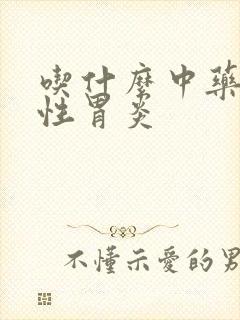 喫什麼中藥
性胃炎
不懂示愛的男